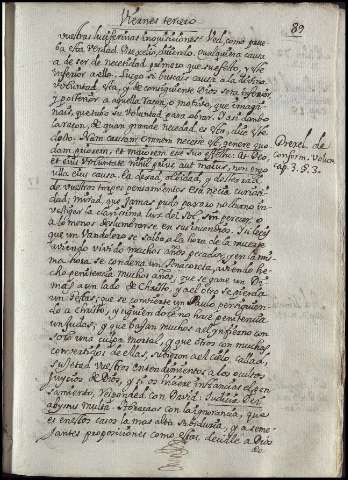 Viernes tercero
89
vuestras luciferinas inquisiciones. Ved, como prue
ba esta verdad. Drexelio, diciendo, qualquiera causa
a de ser de necesidad primero que su efecto, y este
inferior a ella. Luego si buscais causa a la divina
voluntad, esta, y de consiguiente Dios será inferior,
y posterior a aquella razon, o motivo, que imagi
nais, que tubo su voluntad para obrar.
la razon, de quan grande necedad es esta, dice este
docto. Nam causam omnem necesse est, genere quo
dam priorem, et maiorem esse suo effectu: at Deo
et eius voluntate nihil prius aut maius, non ergo
ulla eius causa.
de vuestros torpes pensamientos esa necia curiosi
dad; mirad, que jamas pudo pajaro nocturno in
vestigar la clarisima luz del Sol, sin perecer, o
a lo menos deslumbrarse en sus incendios. Si
que un Vandolero se salba a la hora de la muerte
aviendo vivido muchos años pecador, y en la mis
ma hora se condena un Anacoreta, aviendo he
cho penitencia muchos años; que se gane un Di
mas a un lado de Christo, y a el otro se pierda
un Gestas; que se convierte un Paulo persiguien
do a Christo, y siguiendole no hace penitencia
un Judas; y que bajan muchos a el infierno con
sola una culpa mortal, y que otros con muchos,
con vestigios de ellas, subieron a el cielo, callad,
sujetad vuestros entendimientos a los ocultos
Juycios de Dios, y si os hace instancias el pen
samiento, responded con David: Judicia Dei
abyssus multa. Abrazaos con la ignorancia, que
es en estos casos la mas alta sabiduria, y a seme
jantes proposiciones como estas, decidle a Dios
Drexel. de
conform. Volun.
cap. 3. §. 3.